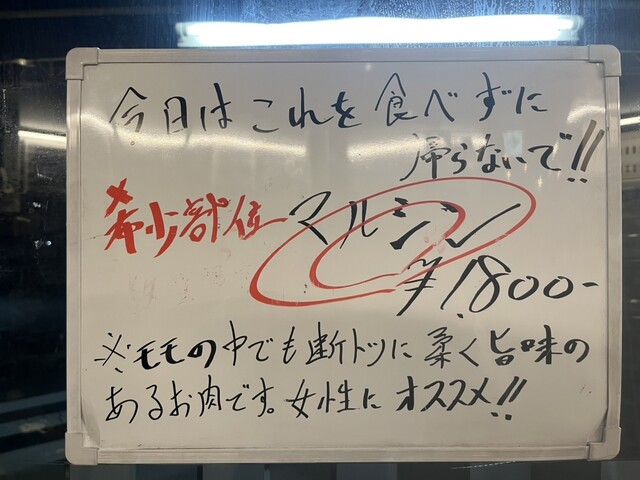 今日はこれを食べずに
帰らないで!!
希少部位 マルシン
¥1,800-
※モモの中でも断トツに柔く旨味の
あるお肉です。女性にオススメ!!